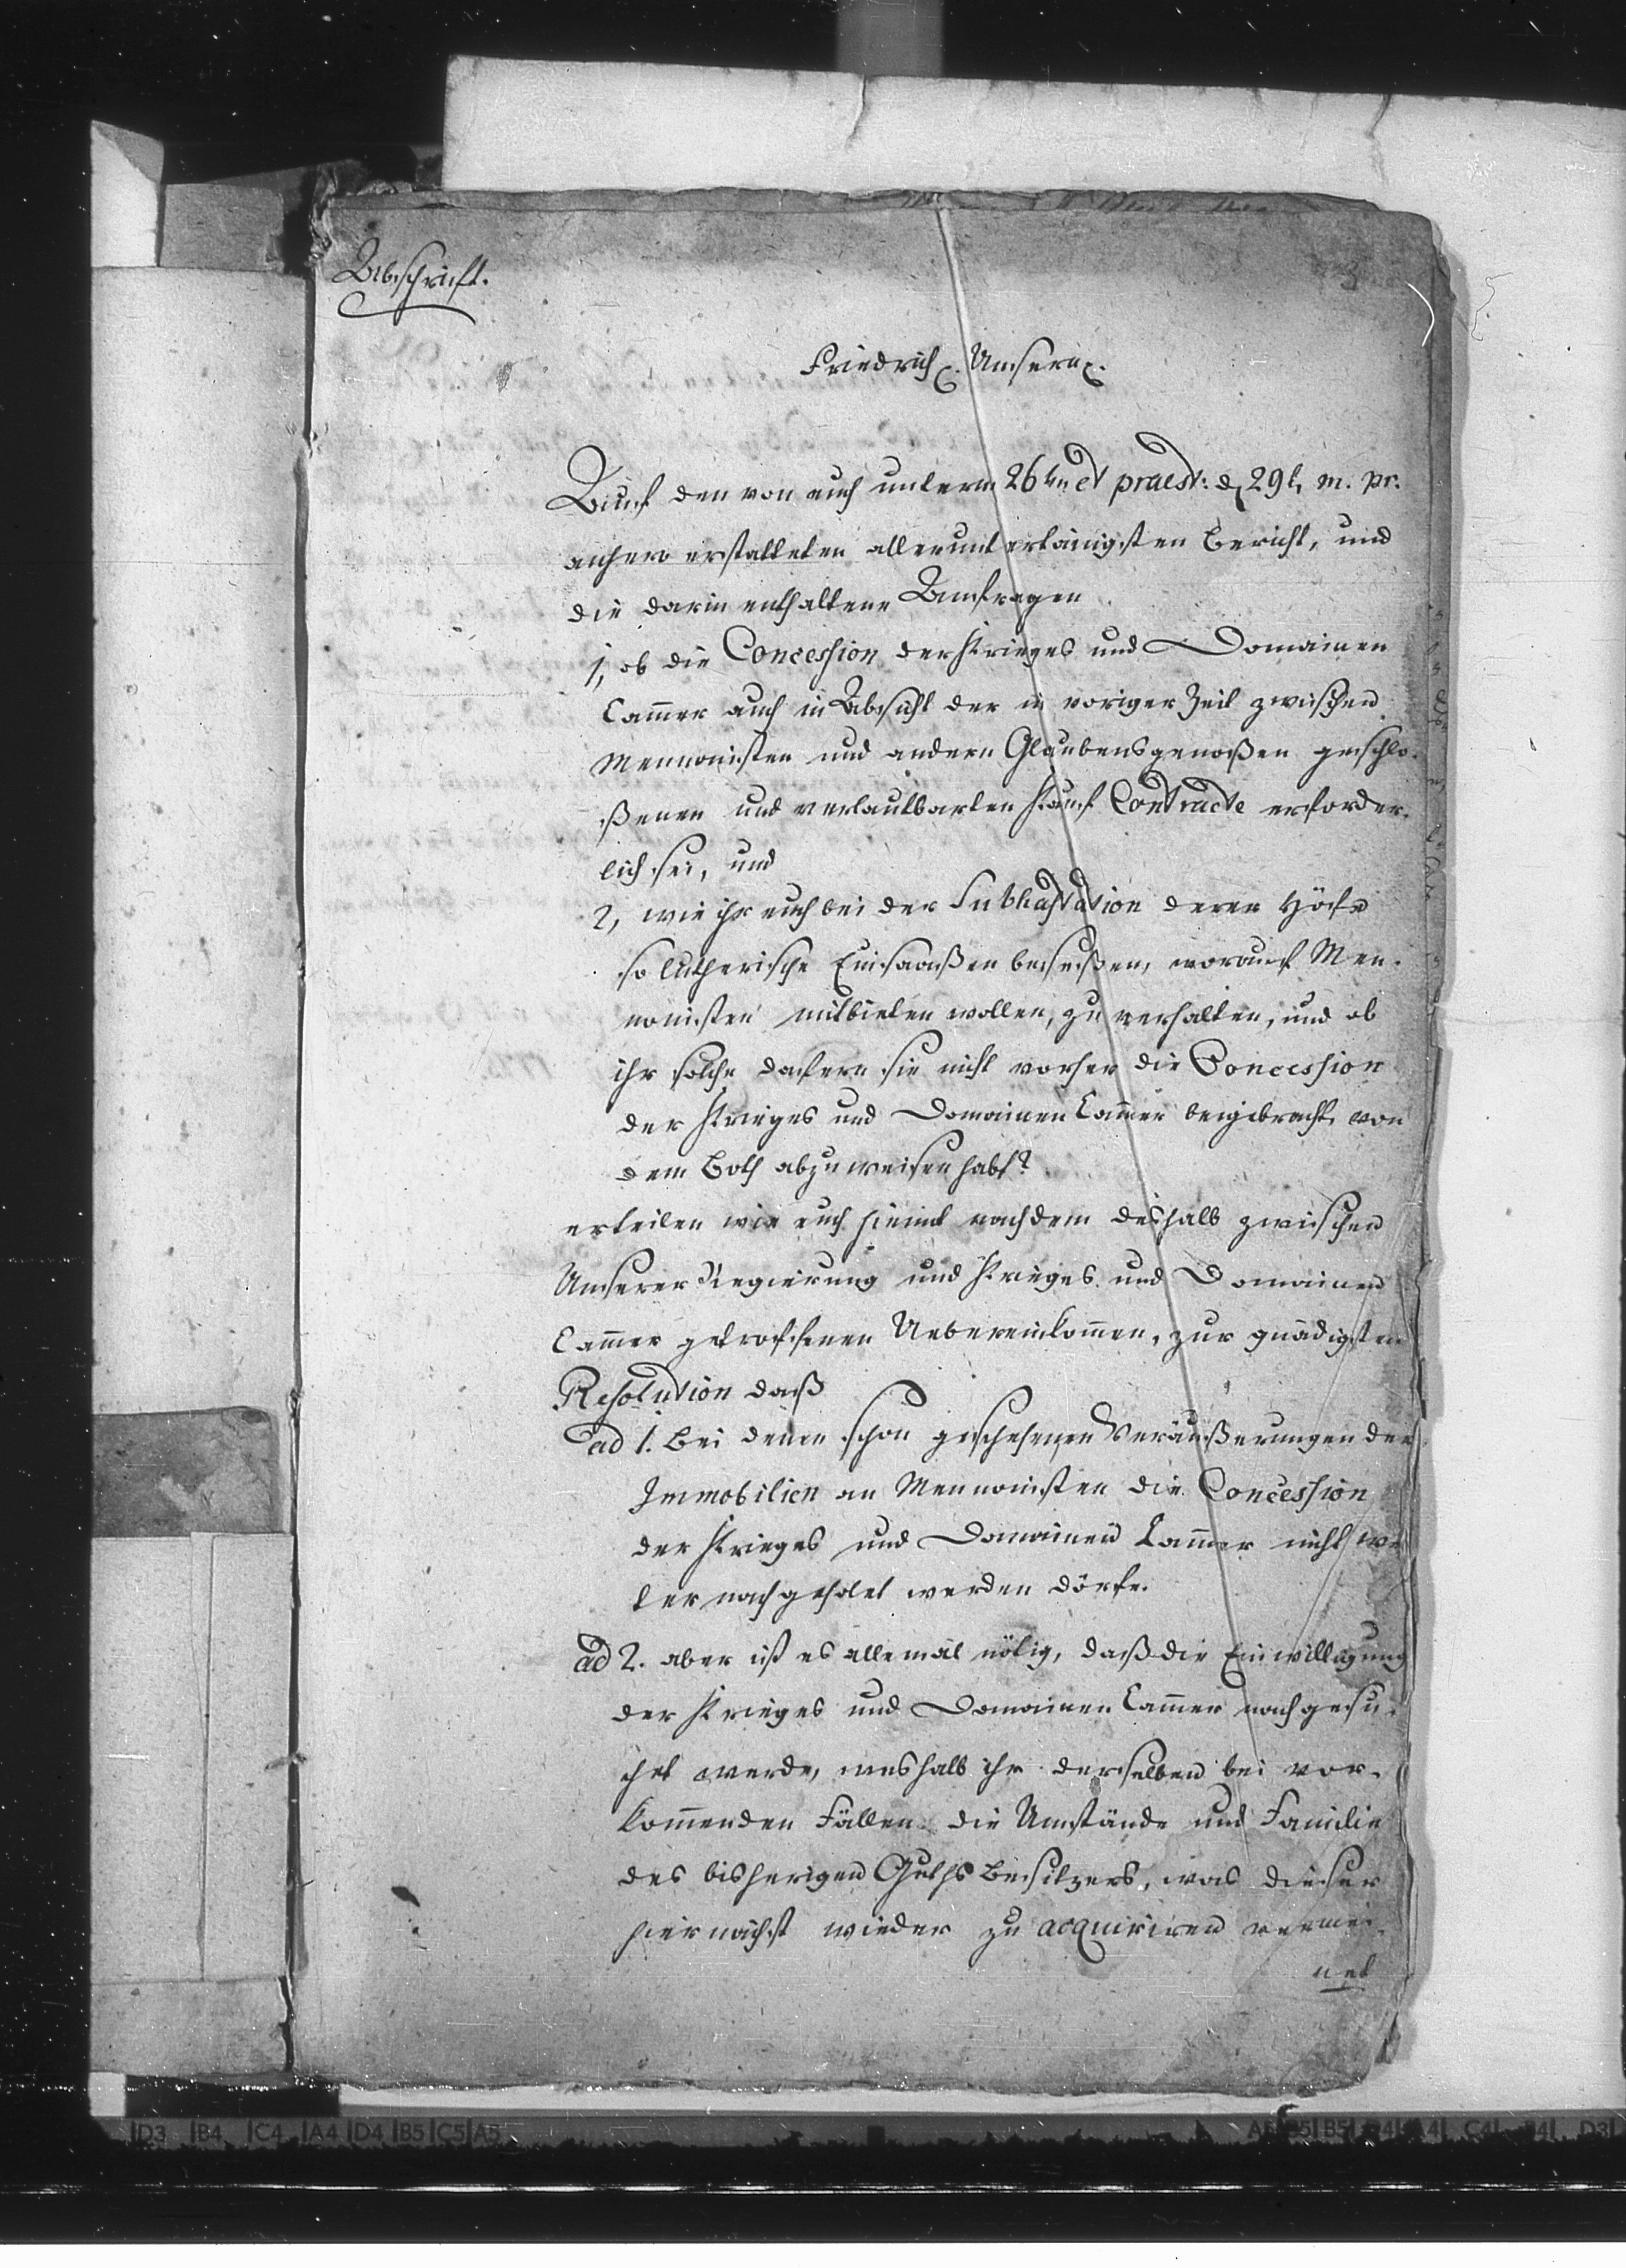 Abschrift.
3
Friedrich p. Unsern p.
Auf den von euch unterm 26ten et praest: d 29t. m. pr.
anhero erstatteten allerunterthänigsten Bericht, und
die darin enthaltene Anfragen
1, ob die Concession der Krieges und Domainen
Cammer auch in Absicht der in voriger Zeit zwischen
Mennonisten und andern Glaubensgenoßen geschlo-
ßenen und verlautbarten Kauf Contracte erforder-
lich sei, und
2, wie ihr euch bei der Subhastation derer Höfe
so lutherische Einsaaßen beseßen, worauf Men-
nonisten mitbieten wollen, zu verhalten, und ob
ihr solche dafern sie nicht vorher die Concession
der Krieges und Domainen Cammer beigebracht, von
dem Both abzuweisen habt?
erteilen wir euch hiemit nach dem deshalb zwischen
Unserer Regierung und Krieges und Domainen
Cammer getroffenen Uebereinkommen, zur gnädigsten
Resolution daß
ad 1. bei denen schon geschehenen Veräußerungen der
Immobilien an Mennonisten die Concession
der Krieges und Domainen Cammer nicht wei
ter nachgeholet werden dörfe.
ad 2. aber ist es allemal nötig, daß die Einwilligung
der Krieges und Domainen Cammer nachgesu-
chet werde, weshalb ihr derselben bei vor-
kommenden Fällen die Umstände und Familie
des bisherigen Guths Besitzers, was dieser
hiernächst wieder zu acquiriren vermei-
net
D3 B4 C4 A4 D4 B5 C5 A5
A5 B5 A4 C4 B4 D3